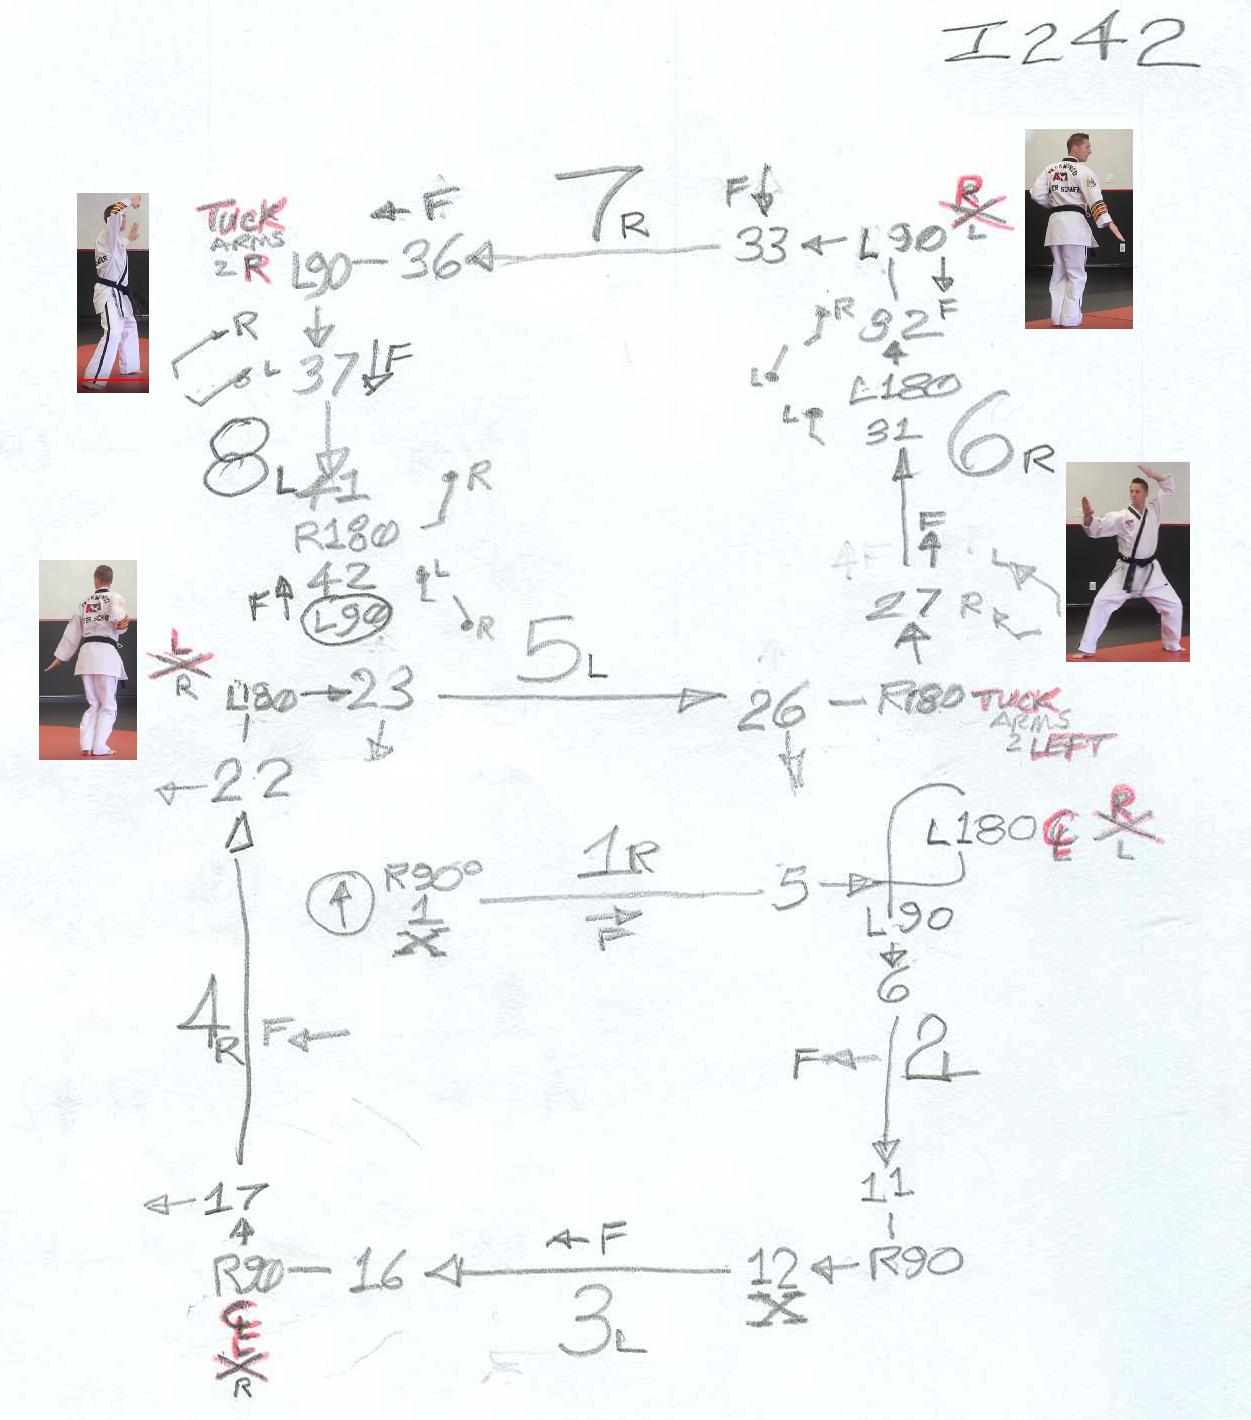 I242
7R
F
F
TUCK
ARMS
2 R
L90
36
33
L90
R
L
R
32
F
R
L
37
F
L
L180
L
31
6R
8L
41
R
R180
F
F
L
42
L
27
R
R
F
L90
R
5L
L
R
L180
23
26
R180
TUCK
ARMS
2 LEFT
22
L180
R
L
1R
R90°
1
X
5
F
L90
6
4R
F
F
2L
17
11
F
R90
16
12
X
R90
3L
L
R